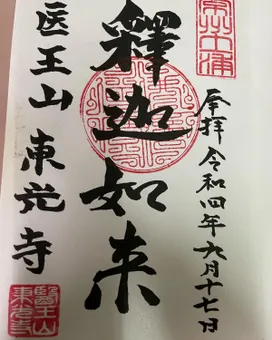 奉拝 令和四年六月十七日
釋迦如来
医王山 東光寺
醫王山
東光寺